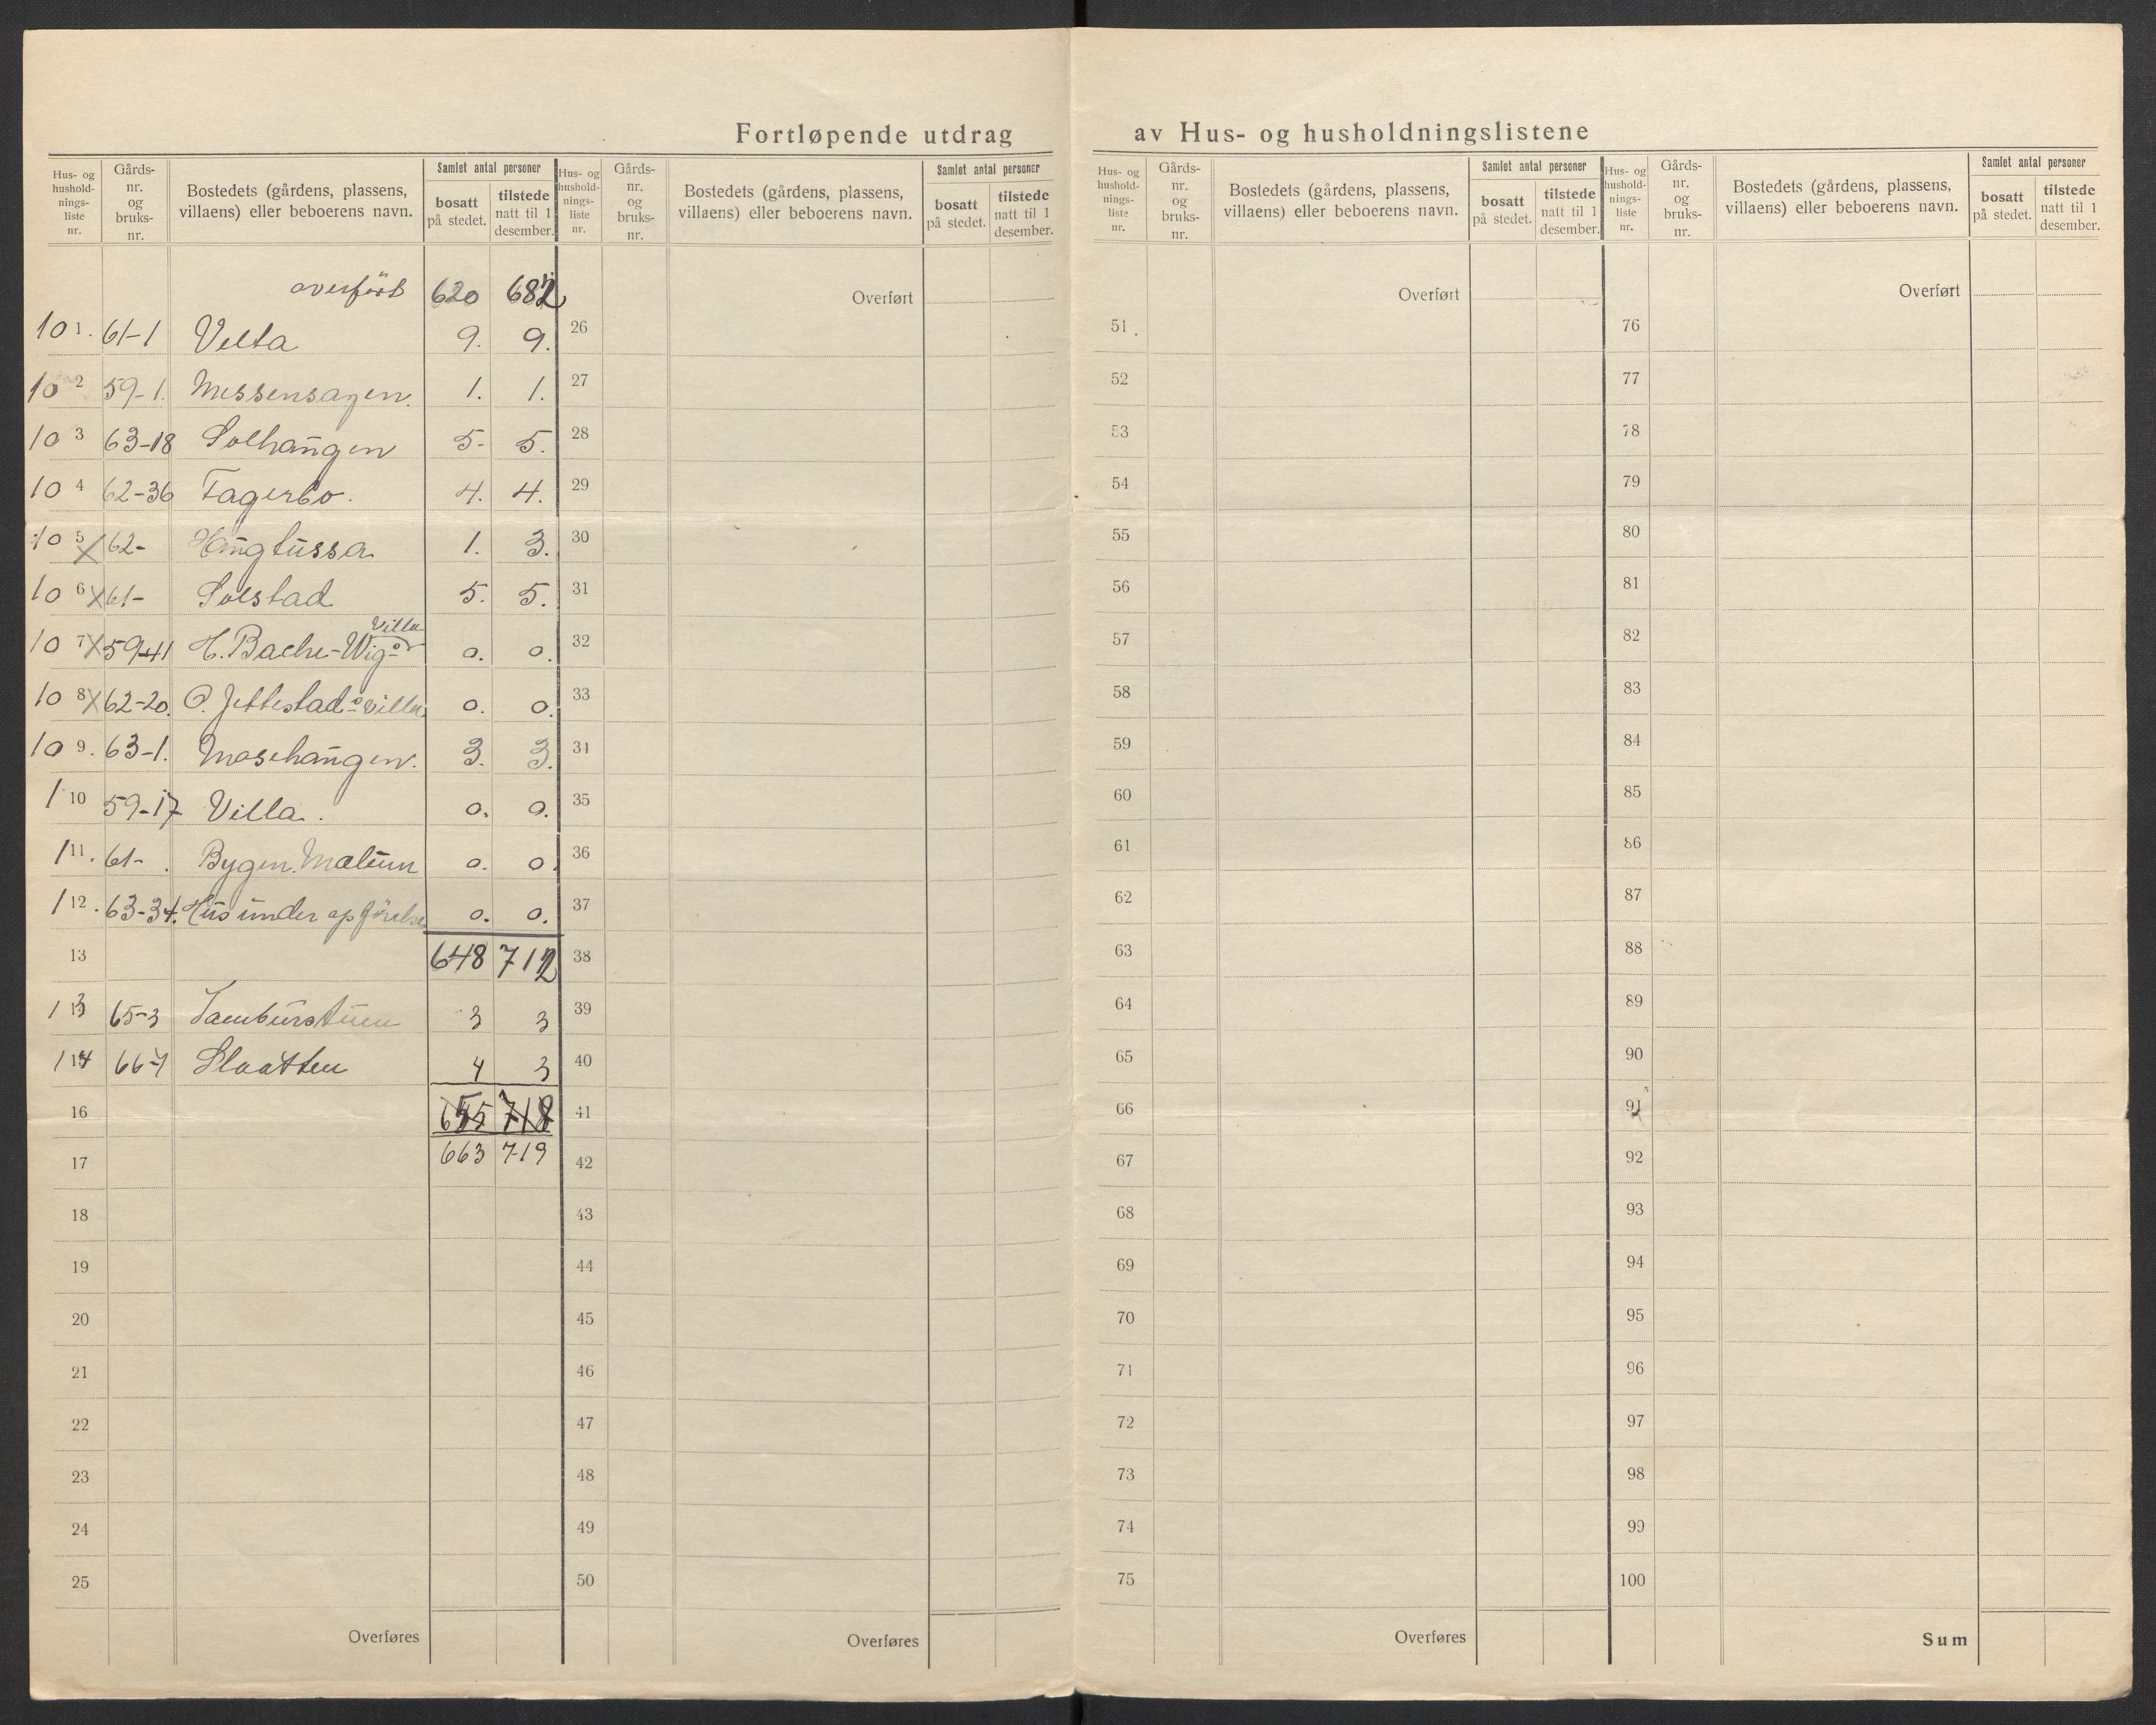 Fortløpende utdrag av Hus- og husholdningslistene
Hus- og hushold-nings-liste nr. Gårds-nr. og bruks-nr. Bostedets (gårdens, plassens, villaens) eller beboerens navn. Samlet antal personer bosatt på stedet. tilstede natt til 1 desember.
overført 620 682
101. 61-1 Velta 9. 9.
102 59-1. Messenshagen. 1. 1.
103 63-18 Solhaugen 5. 5.
104 62-36 Fagerbo. 4. 4.
105 X 62- Haugtussa 1. 3.
106 X 61- Solstad 5. 5.
107 X 59-41 H. Bache-Wigs Villa 0. 0.
108 X 62-20. O. Jettestads villa 0. 0.
109. 63-1. Mosehaugen. 3. 3.
110 59-17 Villa. 0. 0.
111. 61- Bygn. Mælum 0. 0.
112. 63-34. Hus under opförelse 0. 0.
13 648 712
113 65-3 3 3
114 66-7 Slaatten 4 3
16 655 718
17 663 719
18
19
20
21
22
23
24
25
Overføres
Hus- og hushold-nings-liste nr. Gårds-nr. og bruks-nr. Bostedets (gårdens, plassens, villaens) eller beboerens navn. Samlet antal personer bosatt på stedet. tilstede natt til 1 desember.
Overført
26
27
28
29
30
31
32
33
31
35
36
37
38
39
40
41
42
43
44
45
46
47
48
49
50
Overføres
Hus- og hushold-nings-liste nr. Gårds-nr. og bruks-nr. Bostedets (gårdens, plassens, villaens) eller beboerens navn. Samlet antal personer bosatt på stedet. tilstede natt til 1 desember.
Overført
51
52
53
54
55
56
57
58
59
60
61
62
63
64
65
66
67
68
69
70
71
72
73
74
75
Overføres
Hus- og hushold-nings-liste nr. Gårds-nr. og bruks-nr. Bostedets (gårdens, plassens, villaens) eller beboerens navn. Samlet antal personer bosatt på stedet. tilstede natt til 1 desember.
Overført
76
77
78
79
80
81
82
83
84
85
86
87
88
89
90
91
92
93
94
95
96
97
98
99
100
Sum